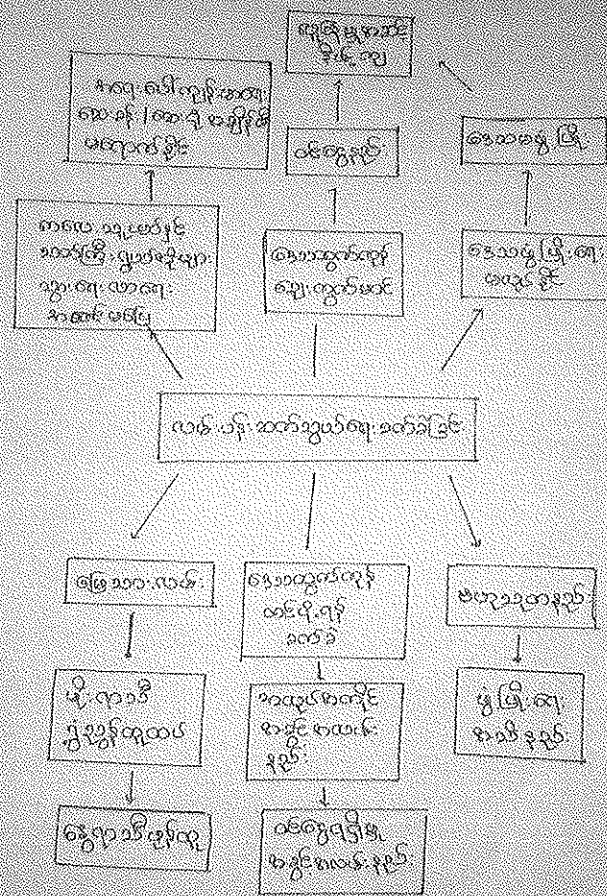 လူမြို့မှုအဆင့်
နိမ့်ကျ
အရေးပေါ်ကျန်းမာရေး
ဆေးခန်း / ကား ဖို့ အချိန်မီ
မရောက်နိုင်
ဝင်ငွေနည်း
ဒေသမဖွံ့ဖြိုး
ကလေး သူငယ်နှင့်
သက်ကြီးရွယ်အိုများ
သွားရေးလာရေး
အဆင်မပြေ
ဒေသထွက်ကုန်
ဈေးကွက်မဝင်
ဒေသဖွံ့ဖြိုးရေး
မလုပ်နိုင်
လမ်းပန်းဆက်သွယ်ရေးခက်ခဲခြင်း
မြေသားလမ်း
ဒေသထွက်ကုန်
တင်ပို့ရန်
ခက်ခဲ
ဗဟုသုတနည်း
မိုးရာသီ
ရွှံ့ညွန်ထူထပ်
အလုပ်အကိုင်
အခွင့်အလမ်း
နည်း
ဖွံ့ဖြိုးရေး
အသိနည်း
နွေရာသီဖုန်ထူ
ဝင်ငွေရရှိမှု
အခွင့်အလမ်းနည်း